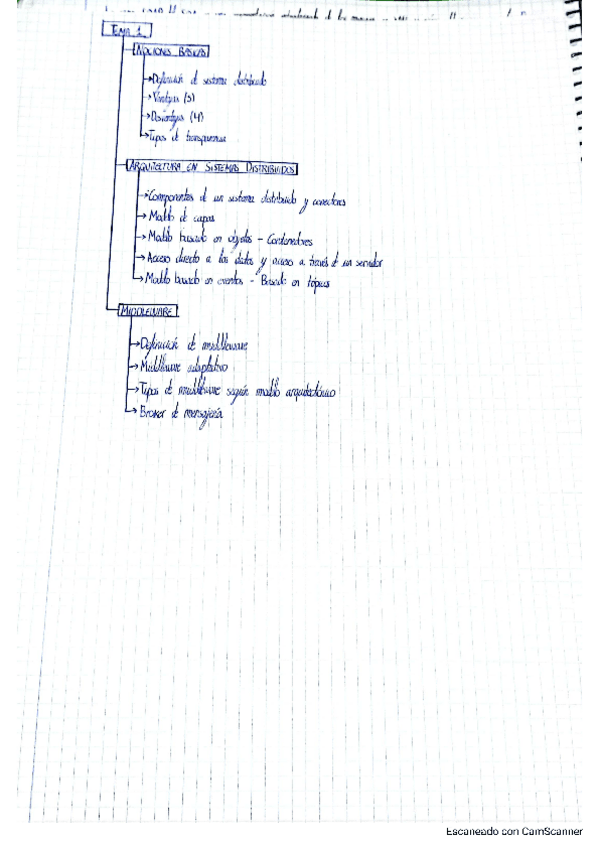 TEMA 1
NOCIONES BÁSICAS
→Definición de sistema distribuido
→Ventajas (5)
→Desventajas (4)
→Tipos de transparencia
ARQUITECTURA EN SISTEMAS DISTRIBUIDOS
→Componentes de un sistema distribuido y conectores
→Modelo de capas
→Modelo basado en objetos - Contenedores
→Acceso directo a los datos y acceso a través de un servidor
→Modelo basado en eventos - Basado en tópicos
MIDDLEWARE
→Definición de middleware
→Middleware adaptativo
→Tipos de middleware según modelo arquitectónico
→Broker de mensajería
Escaneado con CamScanner